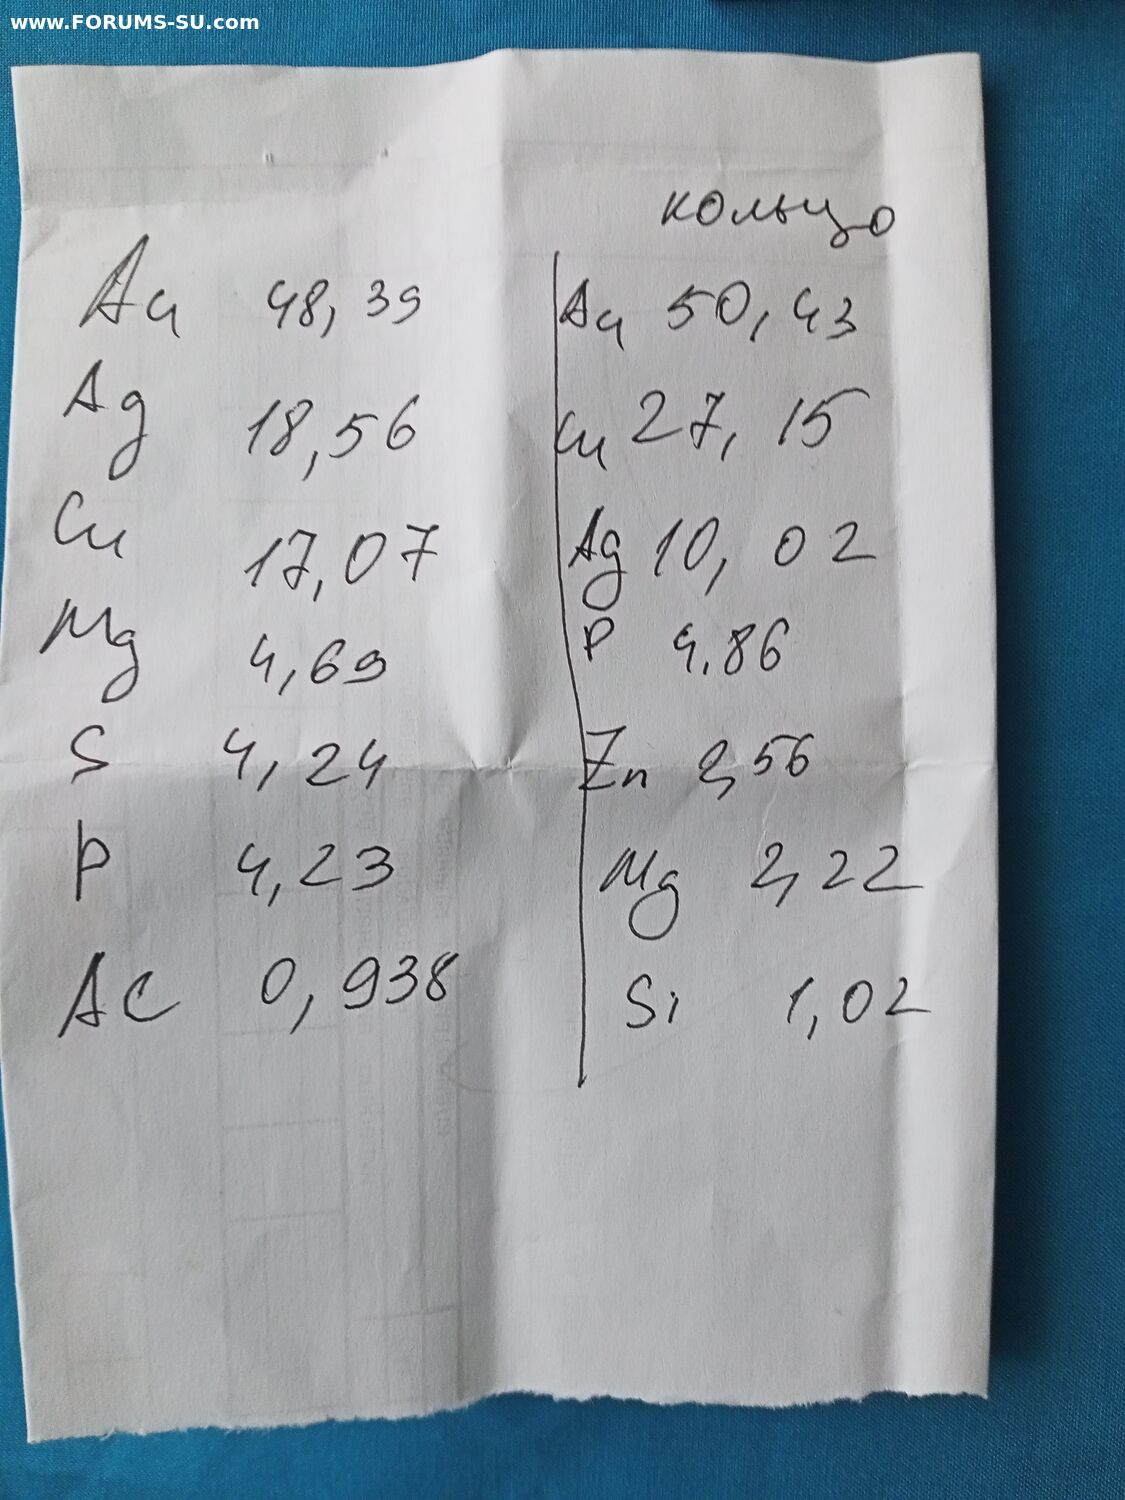 www.FORUMS-SU.com
кольцо
Au 48,39
Ag 18,56
Cu 17,07
Mg 4,69
S 4,24
P 4,23
Ac 0,938
Au 50,43
Cu 27,15
Ag 10,02
P 4.86
Zn 2,56
Mg 2,22
Si 1,02